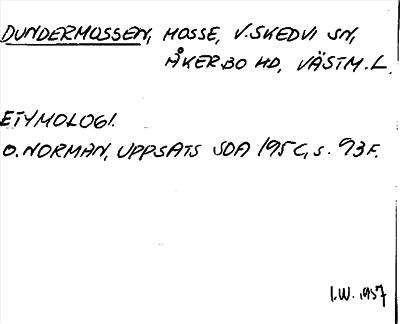 DUNDERMOSSEN, MOSSE, V. SKEDVI SN,
ÅKERBO HD, VÄSTM. L.
ETYMOLOGI.
O. NORMAN, UPPSATS SOA 195C, s. 93 F.
I.W. 1957